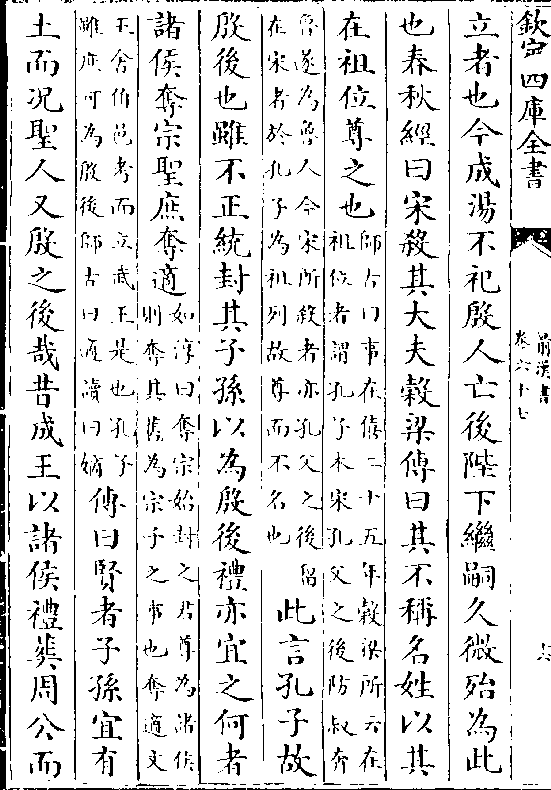 欽定四庫全書
前漢書
卷六十七
立者也今成湯不祀殷人亡後陛下繼嗣久微殆為此
也春秋經曰宋殺其大夫穀梁傳曰其不稱名姓以其
在祖位尊之也師古曰事在僖二十五年穀梁所云在祖位者謂孔子本宋孔父之後防叔奔
魯遂為魯人今宋所殺者亦孔父之後留在宋者於孔子為祖列故尊而不名也此言孔子故
殷後也雖不正統封其子孫以為殷後禮亦宜之何者
諸侯奪宗聖庶奪適如淳曰奪宗始封之君尊為諸侯則奪其舊為宗子之事也奪適文
王舍伯邑考而立武王是也孔子雖庶可為殷後師古曰適讀曰嫡傳曰賢者子孫宜有
土而況聖人又殷之後哉昔成王以諸侯禮葬周公而